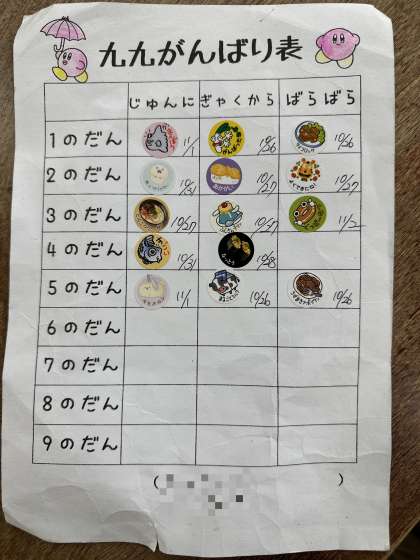 九九がんばり表
じゅんに ぎゃくから ばらばら
1のだん 11/1 10/26 10/26
2のだん 10/31 10/27 10/27
3のだん 10/27 10/27 11/2
4のだん 10/31 10/28
5のだん 11/1 10/26 10/26
6のだん
7のだん
8のだん
9のだん
( )